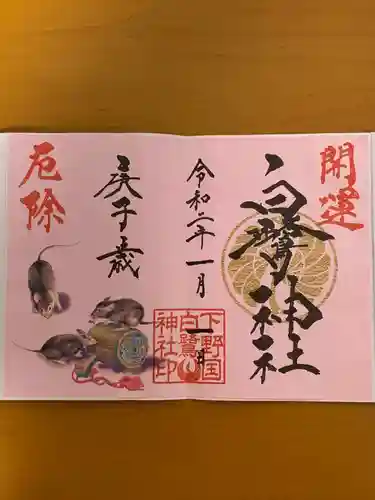 開運
白鷺神社
令和二年一月一日
庚子歳
厄除
下野国
白鷺
神社印